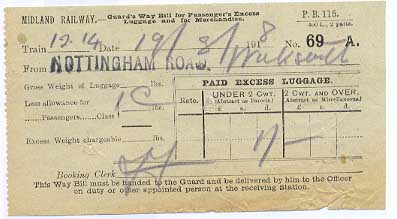 MIDLAND RAILWAY. Guard's Way Bill for Passenger's Excess Luggage and for Merchandise. P.B. 115.
Train 12.14 Date 19/8/1918 No. 69 A.
From NOTTINGHAM ROAD. Wirksworth
PAID EXCESS LUGGAGE.
Gross Weight of Luggage lbs.
Rate. UNDER 2 CWT. (Abstract as Parcels) 2 CWT. AND OVER. (Abstract as Miscellaneous)
Less allowance for 1 C lbs.
£ s. d. £ s. d.
Passengers Class
Excess Weight chargeable lbs. 1/-
Booking Clerk
This Way Bill must be handed to the Guard and be delivered by him to the Officer
on duty or other appointed person at the receiving Station.